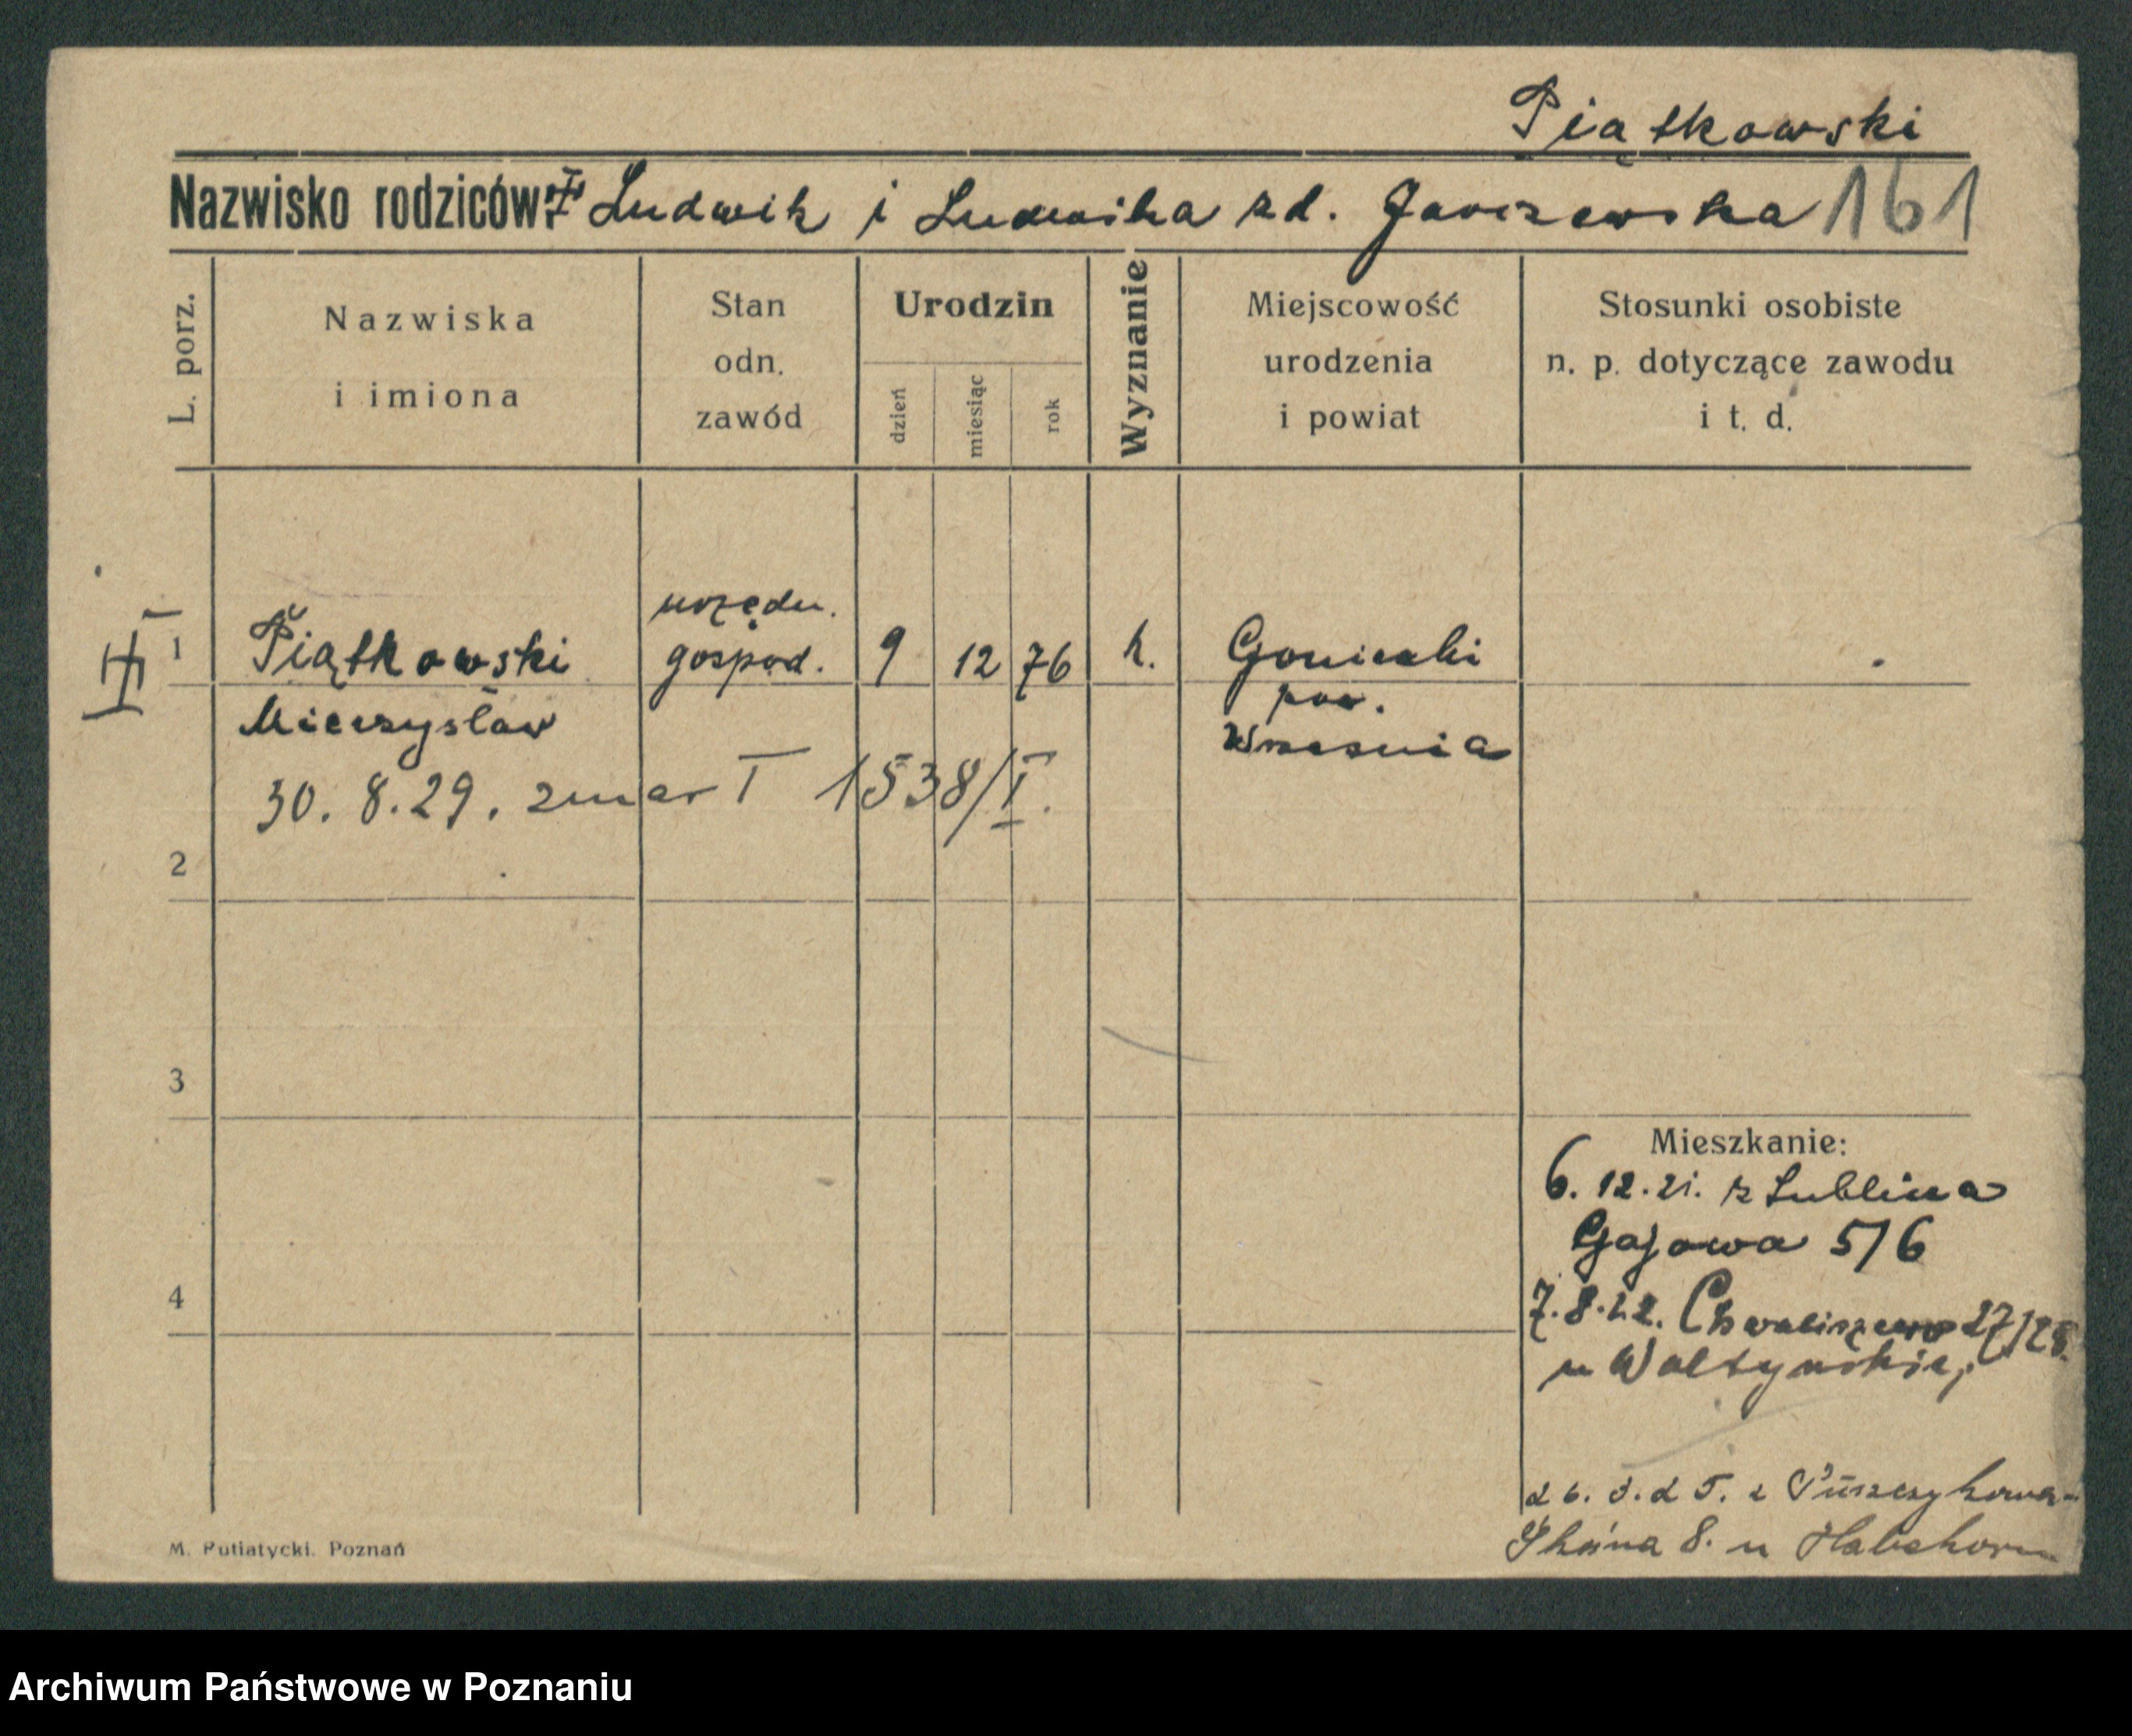 Piątkowski
Nazwisko rodziców: Ludwik i Ludwika zd. Jarczewska 161
L. porz.
Nazwiska
i imiona
Stan
odn.
zawód
Urodzin
dzień
miesiąc
rok
Wyznanie
Miejscowość
urodzenia
i powiat
Stosunki osobiste
n. p. dotyczące zawodu
i t. d.
urzędn.
1 Piątkowski gospod. 9 12 76 k. Goniczki
Mieczysław pow.
Wrzesnia
30. 8. 29. zmar T 1538/I.
2
3
4
Mieszkanie:
6. 12. 21. z Lublina
Gajowa 5/6
7. 8. 22. Chwaliszewo 27/28.
u
26. 5. 25. z Puszczykowa-
8. u
M. Putiatycki. Poznań
Archiwum Państwowe w Poznaniu